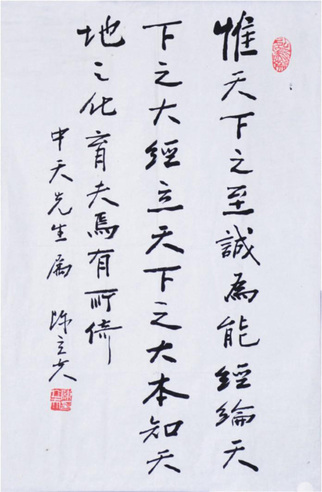 惟天下之至誠為能經綸天
下之大經立天下之大本知天
地之化育夫焉有所倚
中天先生属 陳立夫